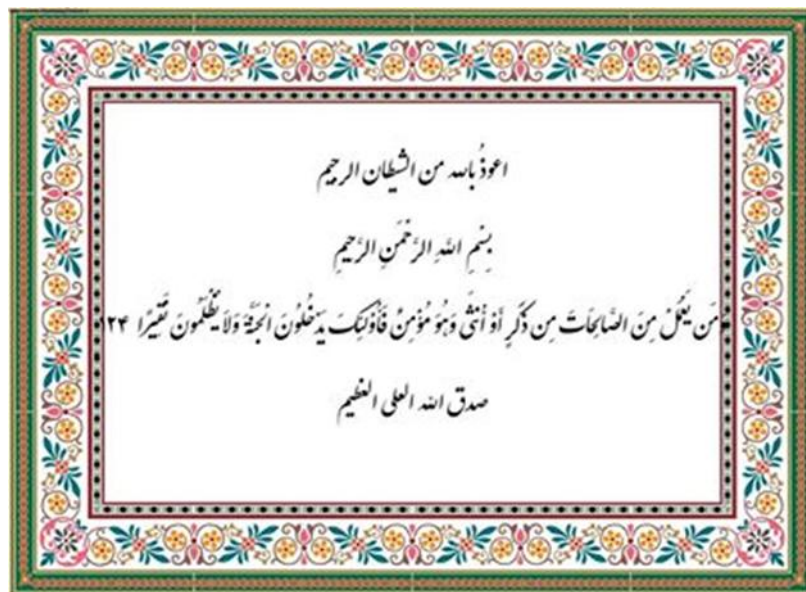 اعوذُ بالله من الشیطان الرجیم
بِسْمِ اللَّهِ الرَّحْمَنِ الرَّحِيمِ
وَمَن يَعْمَلْ مِنَ الصَّالِحَاتَ مِن ذَكَرٍ أَوْ أُنثَى وَهُوَ مُؤْمِنٌ فَأُوْلَئِكَ يَدْخُلُونَ الْجَنَّةَ وَلاَ يُظْلَمُونَ نَقِيرًا ۱۲۴
صدق الله العلی العظیم